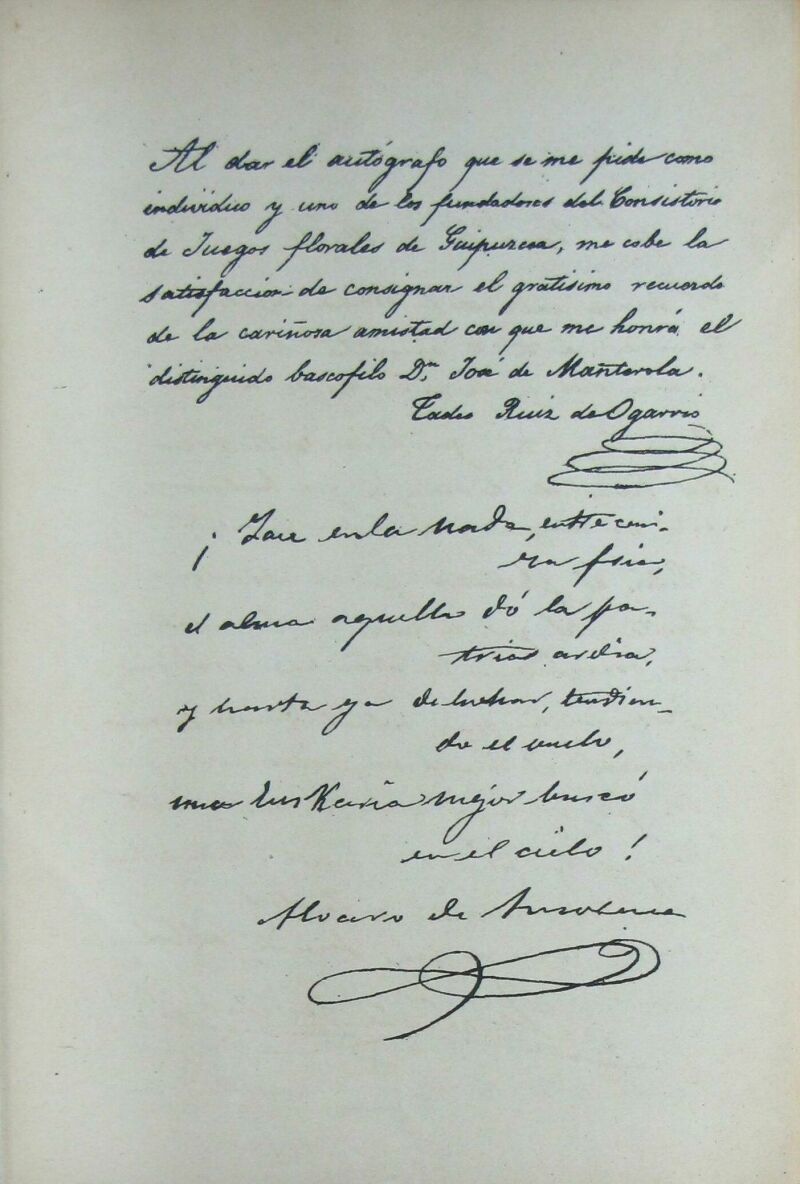 Al dar el autógrafo que se me pide como
individuo y uno de los fundadores del Consistorio
de Juegos florales de Guipuzcoa, me cabe la
satisfaccion de consignar el gratisimo recuerdo
de la cariñosa amistad con que me honrá el
distinguido bascofilo Dn. José de Manterola.
Tadeo Ruiz de Ogarrio
¡Yace en la nada, entre ceni-
za fria,
el alma aquella dó la pa-
tria ardia,
y harta ya de luchar, tendien-
do el vuelo,
una Euskaria mejor buscó
en el cielo!
Alvaro de